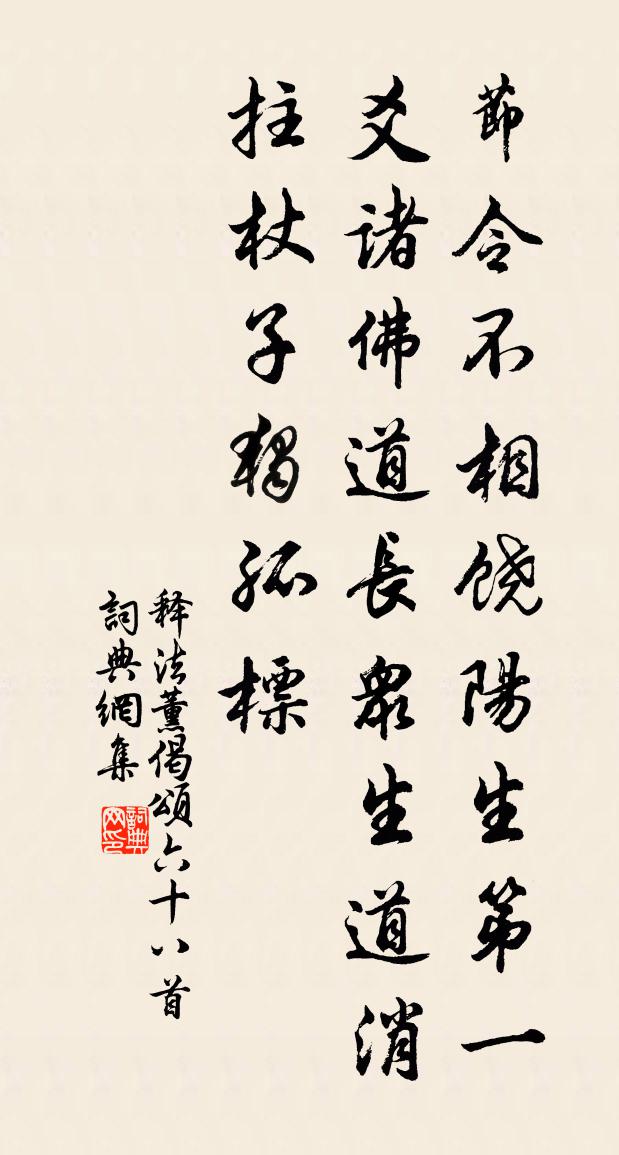 節令不相饶陽生第一
爻諸佛道長衆生道消
拄杖子獨孤標
释法薰偈頌六十八首
詞典網集
詞典网印